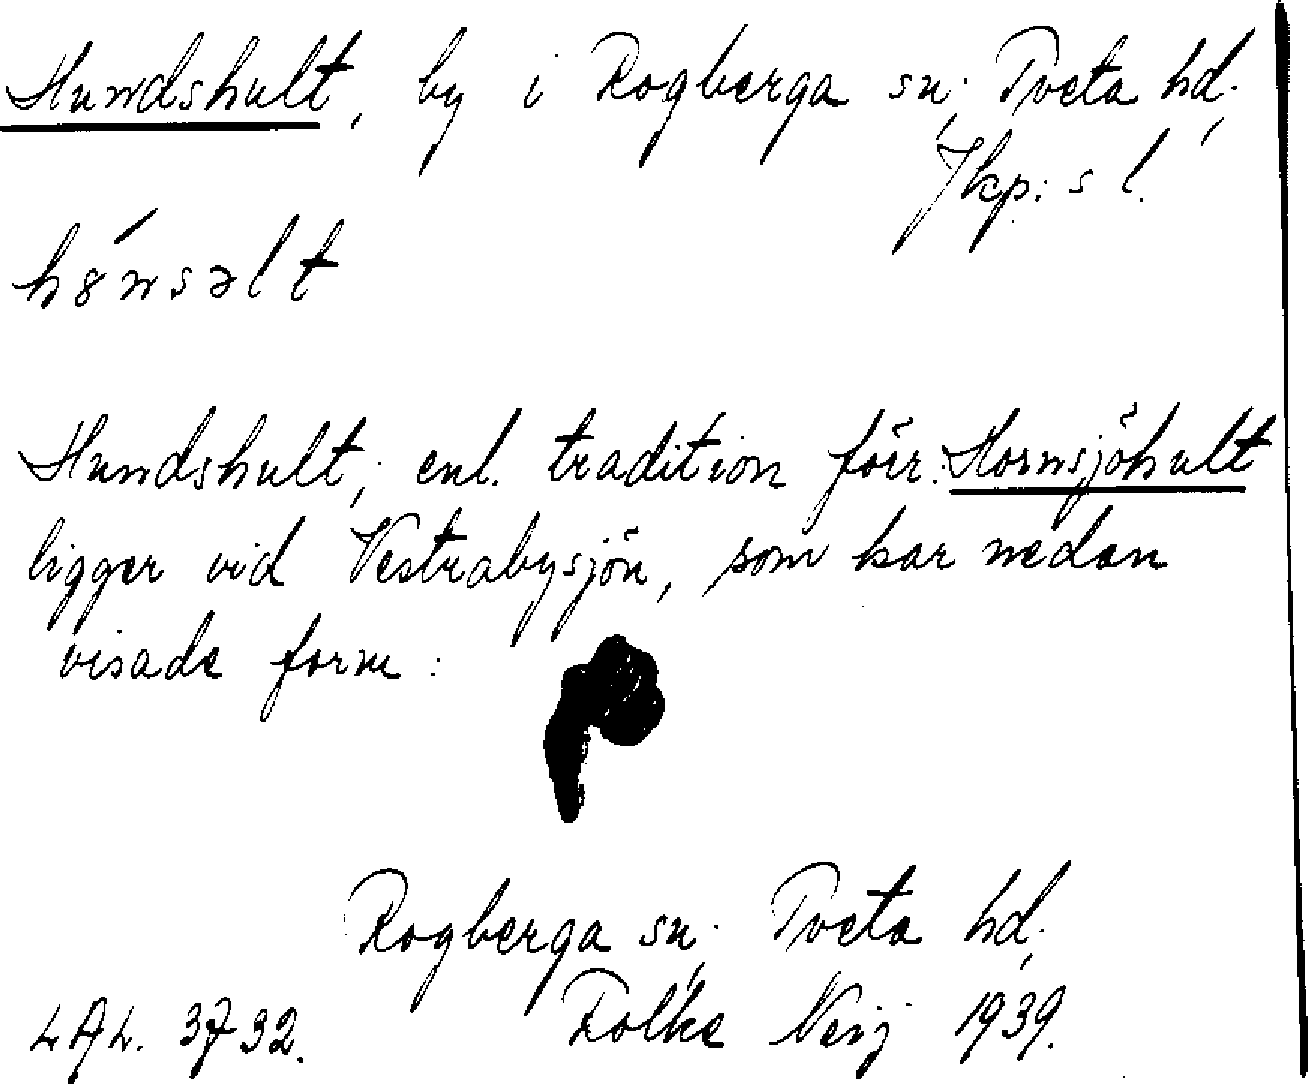 Hundshult, by i Rogberga sn; Tveta hd;
Jkp:s l.
hȣ́nsəlt
Hundshult, enl. tradition förr Hornsjöhult
ligger vid Vestrabysjön, som har nedan
visade form:
Rogberga sn; Tveta hd;
LAL. 3732. Folke Neij 1939.